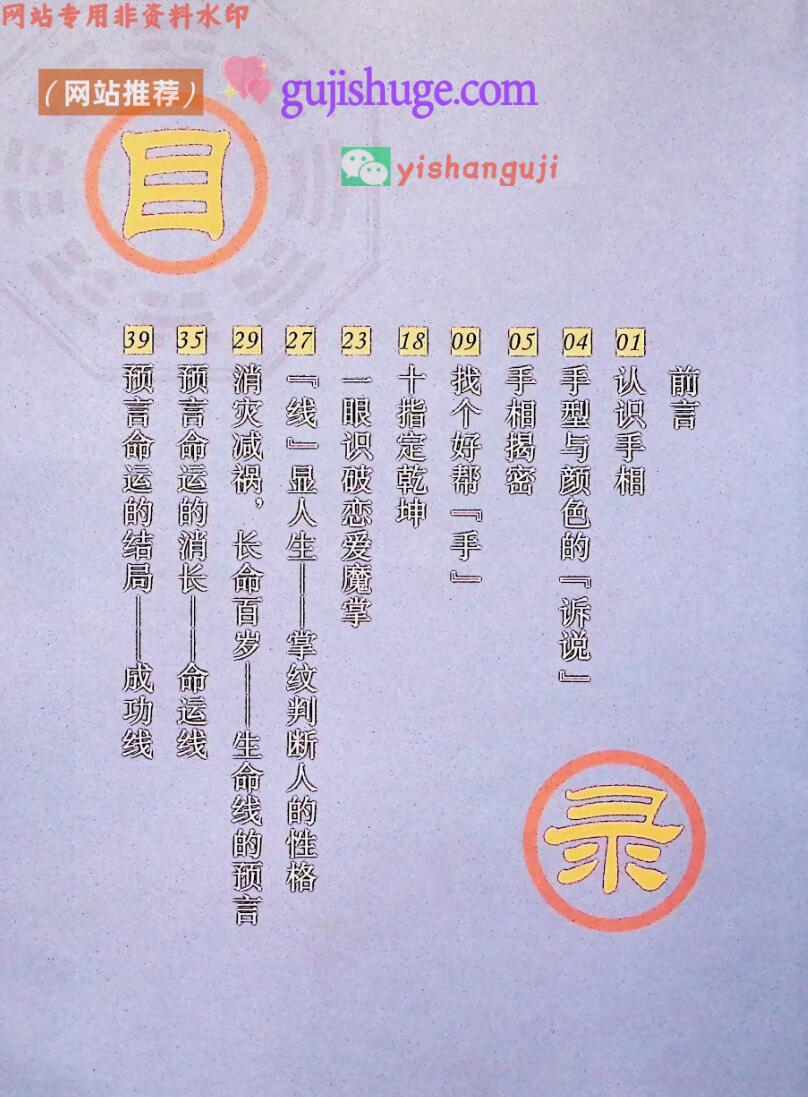 网站专用非资料水印
（网站推荐）
gujishuge.com
yishanguji
目
录
前言
01 认识手相
04 手型与颜色的『诉说』
05 手相揭密
09 找个好帮『手』
18 十指定乾坤
23 一眼识破恋爱魔掌
27 『线』显人生——掌纹判断人的性格
29 消灾减祸，长命百岁——生命线的预言
35 预言命运的消长——命运线
39 预言命运的结局——成功线